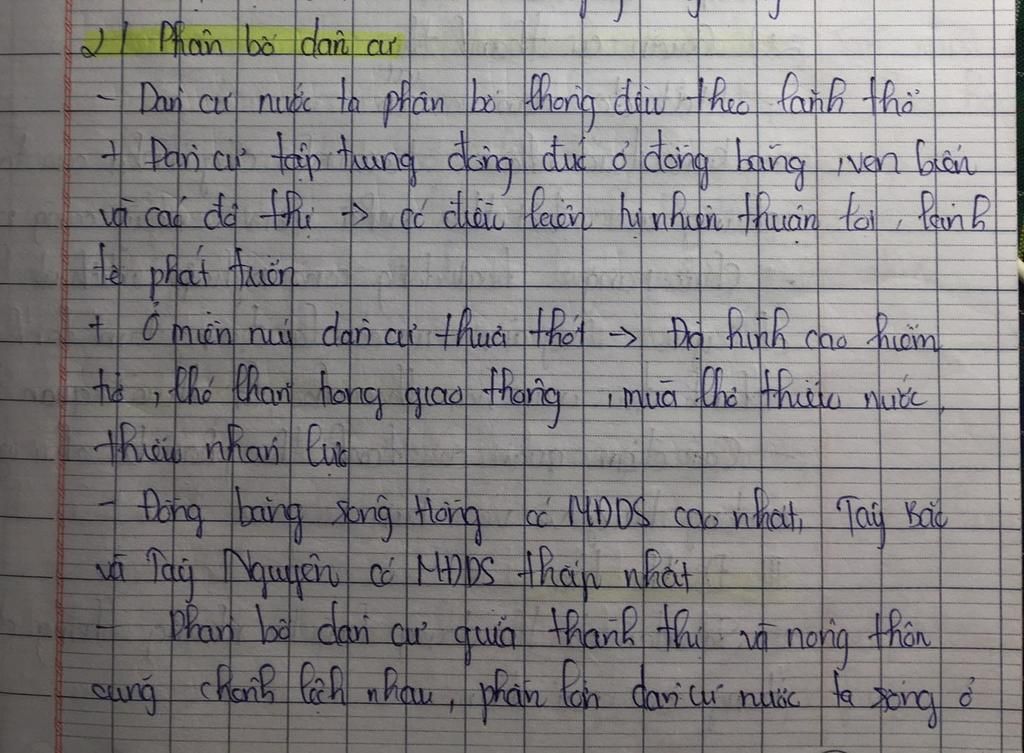 2/ Phân bố dân cư
- Dân cư nước ta phân bố không đều theo lãnh thổ
+ Dân cư tập trung đông đúc ở đồng bằng, ven biển
và các đô thị → có điều kiện tự nhiên thuận lợi, kinh
tế phát triển
+ Ở miền núi dân cư thưa thớt → Địa hình cao hiểm
trở, khó khăn trong giao thông, mùa khô thiếu nước,
thiếu nhân lực
- Đồng bằng sông Hồng có MĐDS cao nhất, Tây Bắc
và Tây Nguyên có MĐDS thấp nhất
- Phân bố dân cư giữa thành thị và nông thôn
cũng chênh lệch nhau, phần lớn dân cư nước ta sống ở